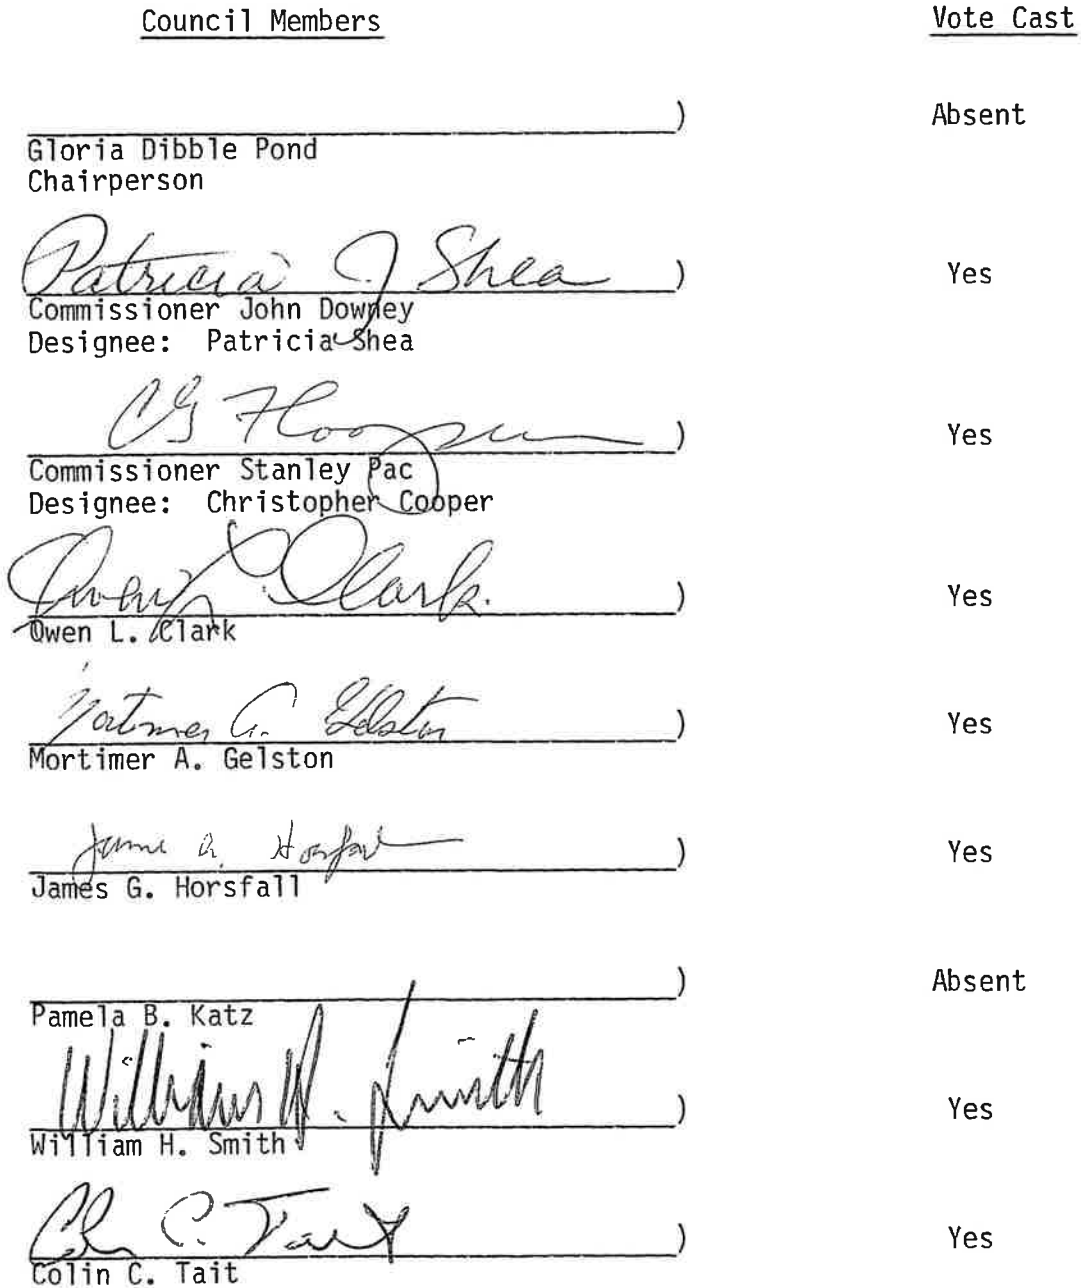 Council Members Vote Cast
) Absent
Gloria Dibble Pond
Chairperson
Patricia J Shea ) Yes
Commissioner John Downey
Designee: Patricia Shea
) Yes
Commissioner Stanley Pac
Designee: Christopher Cooper
Owen L. Clark. ) Yes
Owen L. Clark
Mortimer A. Gelston ) Yes
Mortimer A. Gelston
James G. Horsfall ) Yes
James G. Horsfall
) Absent
Pamela B. Katz
William H. Smith ) Yes
William H. Smith
Colin C. Tait ) Yes
Colin C. Tait